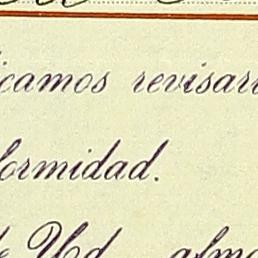 icamos revisarl
formidad.
de Ud. almo